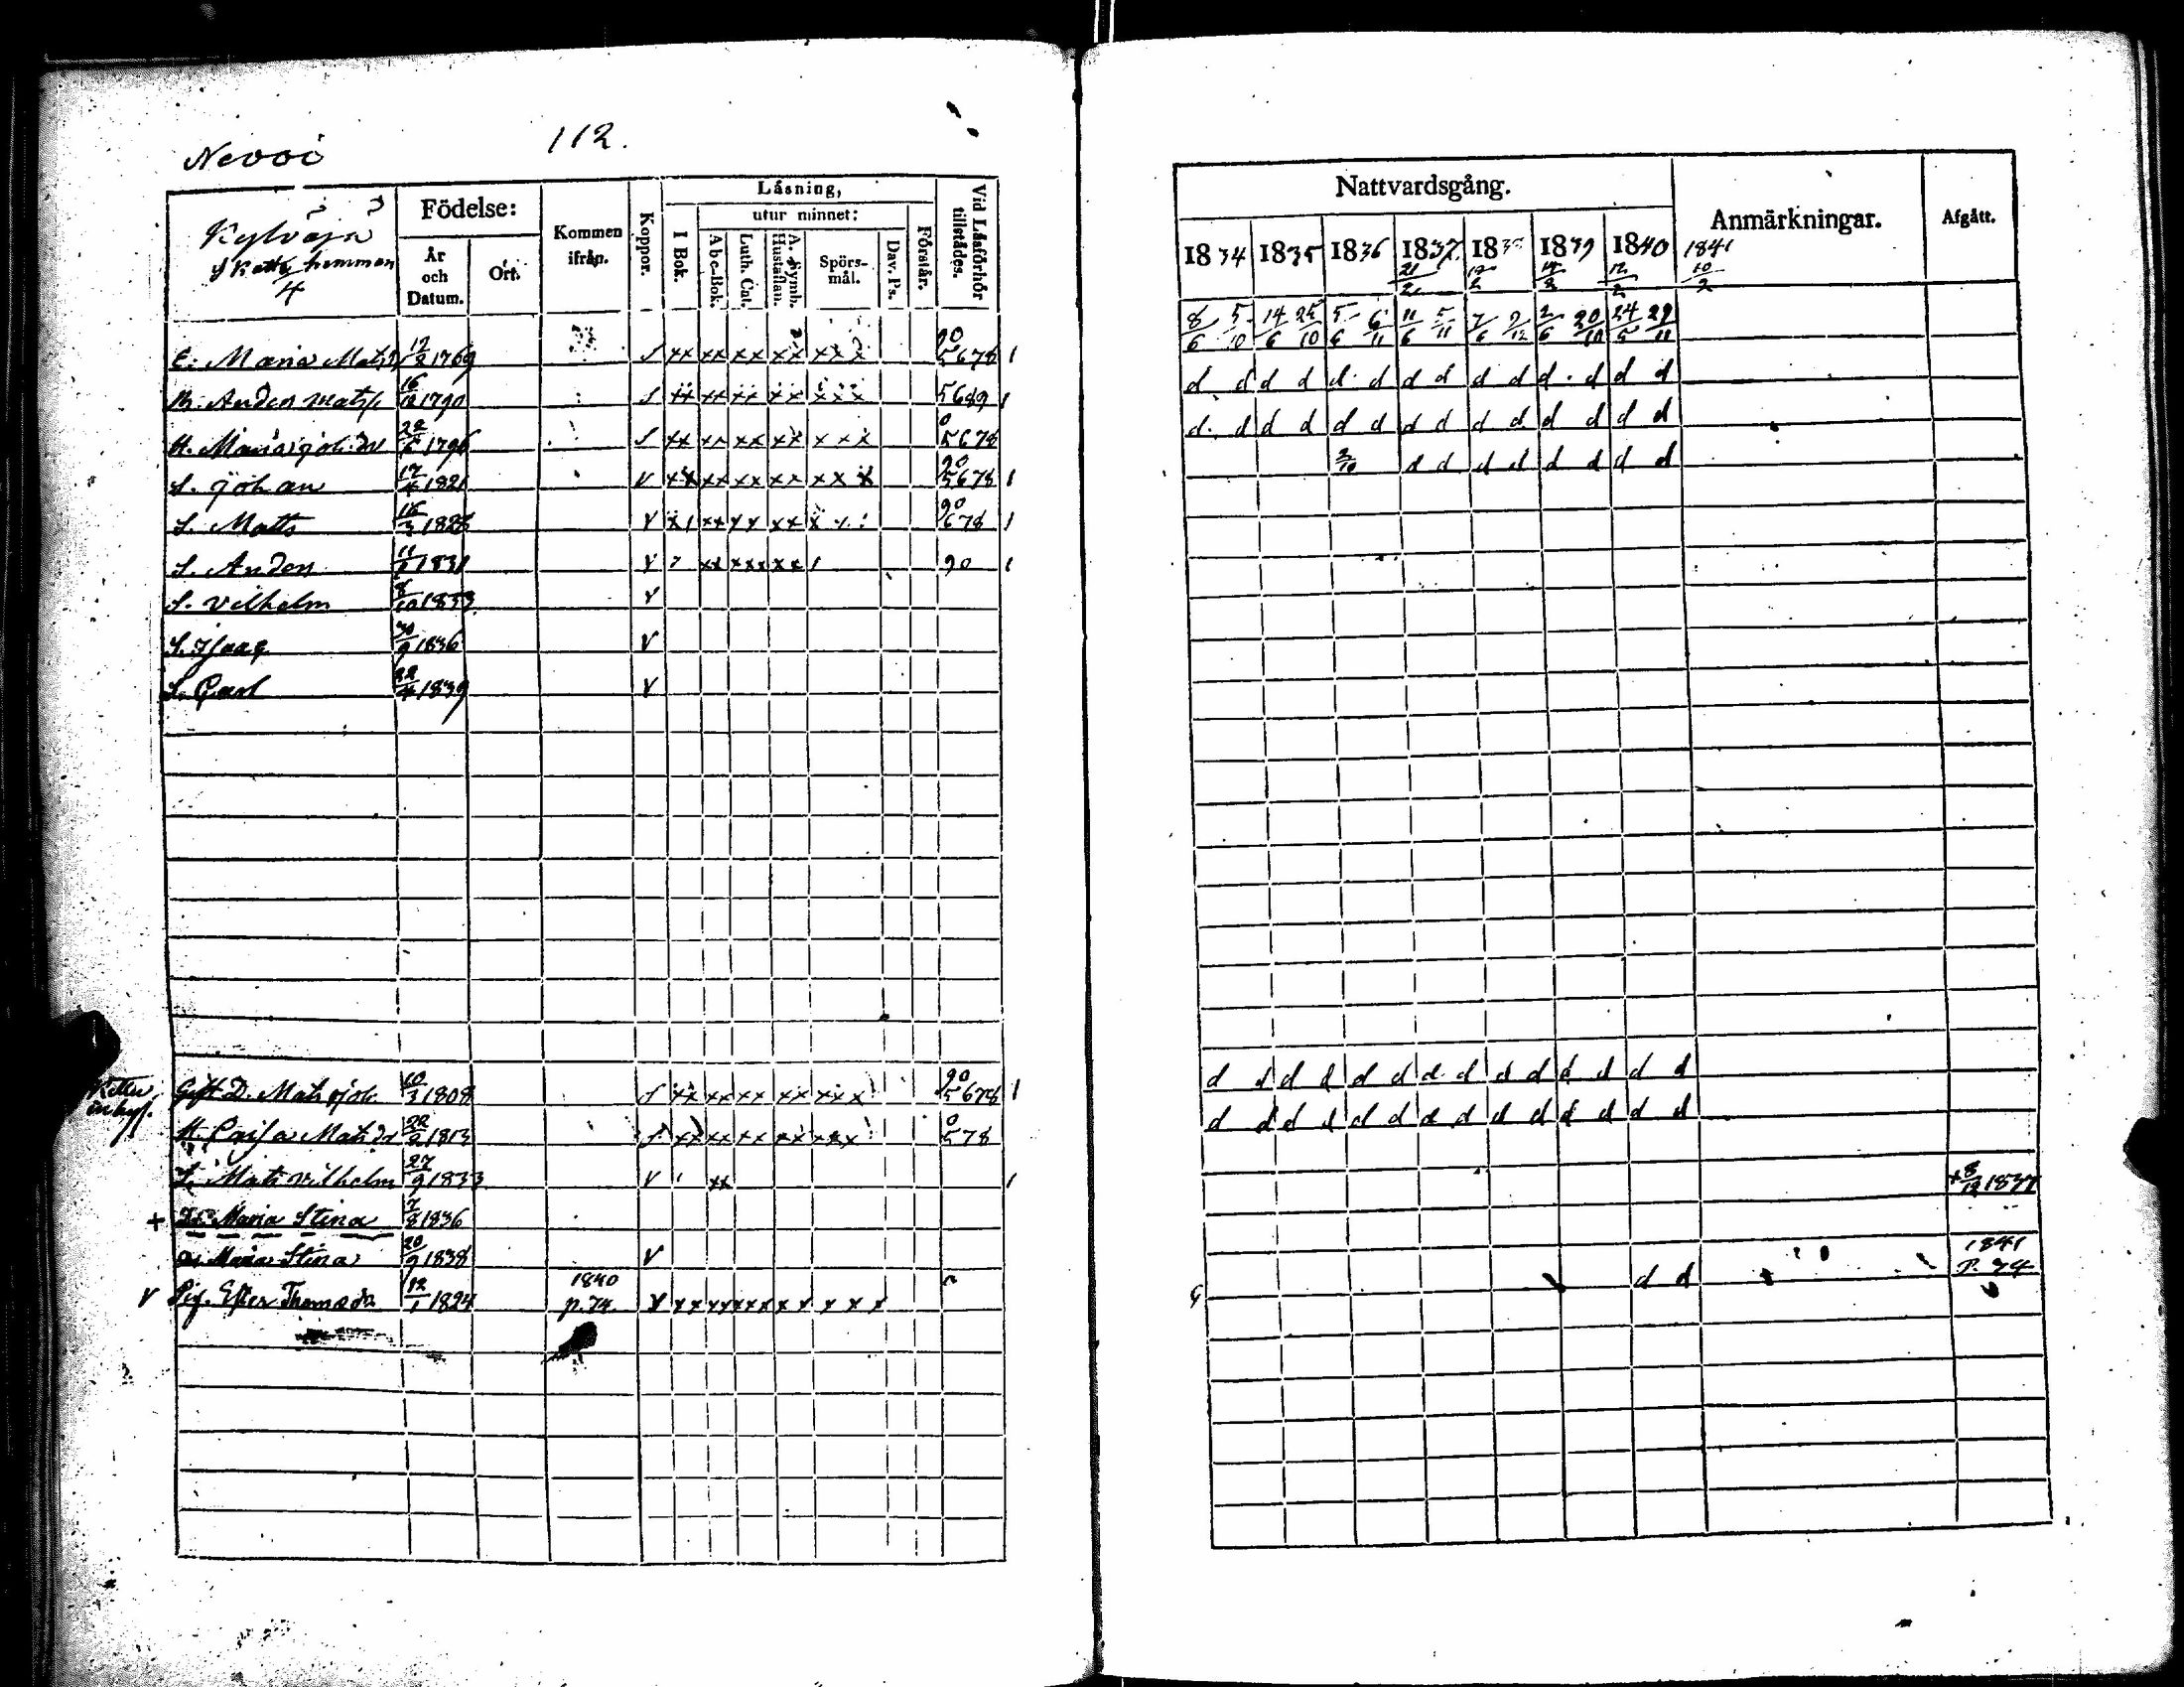 112.
Nevoi
Kylväjä
Skatte hemman
4
Födelse:
År och Datum.
Ort.
Kommen ifrån.
Koppor.
Läsning,
I Bok.
utur minnet:
Abc-Bok.
Luth. Cat.
A. Symb. Hustaflan.
Spörsmål.
Dav. Ps.
Förstår.
Vid Läsförhör tillstädes.
E. Maria Mats 12/2 1769 xx xx xx xx xxx 90 5678 1
B. Anders Mats 16/12 1790 xx xx xx xx xxx 5689 1
H. Maria Joh. dr 1796 xx xx xx xx xxx 0 5678
S. Johan 1821 v xx xx xx xx xxx 90 5678 1
S. Matts v xx xx xx 90 678 1
S. Anders 1831 v xx xxx xx 1 90 1
S. Vilhelm 8/10 1833 v
S. Isaac 30/9 1836 v
S. Carl 22/4 1839 v
Gift D. Mats Joh. 10/3 1808 xx xx xx xx xxx 90 5678 1
H. Caisa Mats dr 22/2 1813 xx xx xx xx xxx 0 578
S. Mats Vilhelm 27/9 1833 v xx 1
+ Dr Maria Stina 7/8 1836
Dr Maria Stina 20/9 1838 v
v Pig. Ester Thomas dr 12/1 1824 1840 p. 74. v xx xx xx xx x x x
Nattvardsgång.
Anmärkningar.
Afgått.
1834 1835 1836 1837 1838 1839 1840 1841
21/2 12/2 14/2 12/2 10/2
8/6 5/10 14/6 25/10 5/6 6/11 11/6 5/11 7/6 2/12 2/6 20/10 24/5 29/11
d d d d d d d d d d d d d d
d d d d d d d d d d d d d d
2/10 d d d d d d d d
d d d d d d d d d d d d d d
d d d d d d d d d d d d d d
+ 8/12 1837
d d 1841 p. 74